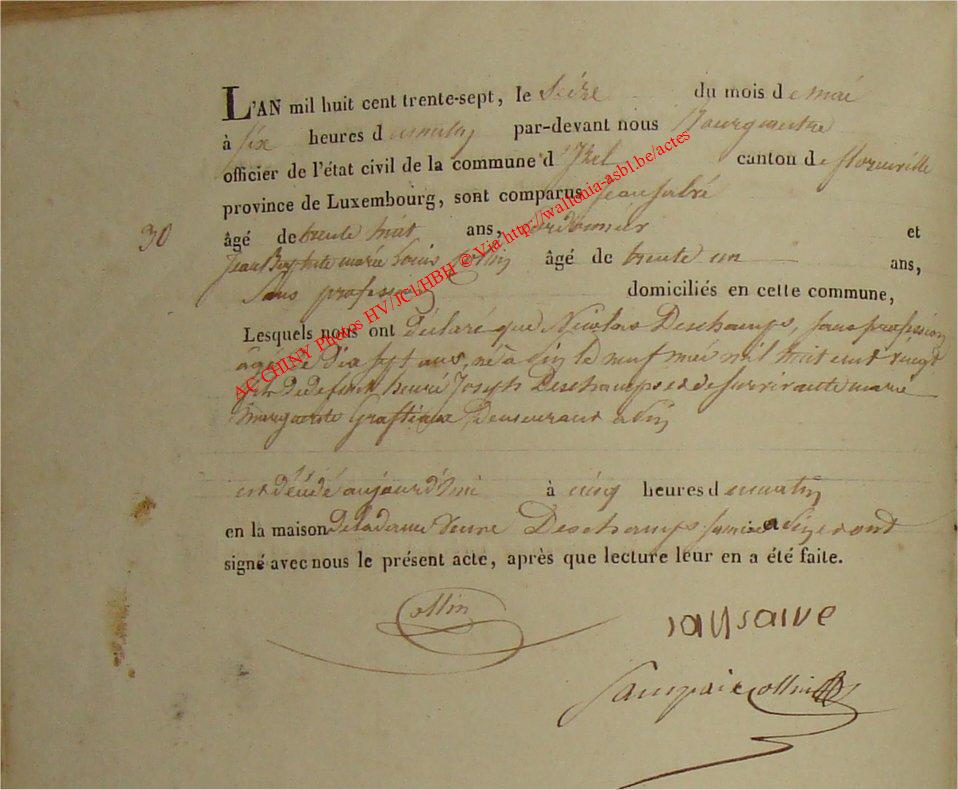 L'AN mil huit cent trente-sept, le Seize du mois de mai
à six heures du matin par-devant nous Bourgmestre
officier de l'état civil de la commune d'Izel canton de florenville
province de Luxembourg, sont comparus jean
30 âgé de trente huit ans, cordonnier et
Jean Baptiste marie Louis Collin âgé de trente un ans,
Sans profession domiciliés en cette commune,
Lesquels nous ont déclaré que Nicolas Deschamps, sans profession
âgé de dix sept ans, né à Pin le neuf mai mil huit cent vingt
fils de defunt henri Joseph Deschamps et de survivante marie
marguerite demeurant a Pin
est décédé aujourd'hui à cinq heures du matin
en la maison de la dame veuve Deschamps a Pin et ont
signé avec nous le présent acte, après que lecture leur en a été faite.
Collin
Collin
ACCHINY Photos HV/JCLHBH © Via http://wallonia-asbl.be/actes